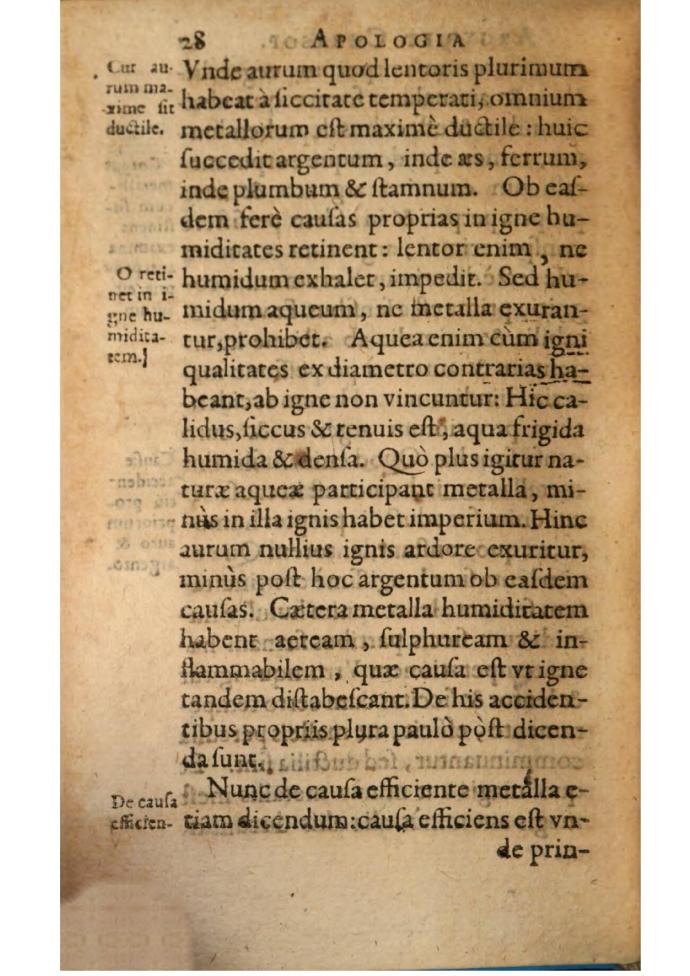 28 APOLOGIA
Cur au-
rum ma-
xime sit
ductile.
Vnde aurum quod lentoris plurimum
habeat à siccitate temperati, omnium
metallorum est maximè ductile : huic
succedit argentum, inde æs, ferrum,
inde plumbum & stamnum. Ob eas-
dem ferè causas proprias in igne hu-
miditates retinent : lentor enim, ne
O reti-
net in i-
gne hu-
midita-
tem.]
humidum exhalet, impedit. Sed hu-
midum aqueum, ne metalla exuran-
tur, prohibet. Aquea enim cùm igni
qualitates ex diametro contrarias ha-
beant, ab igne non vincuntur: Hic ca-
lidus, siccus & tenuis est, aqua frigida
humida & densa. Quò plus igitur na-
turæ aqueæ participant metalla, mi-
nùs in illa ignis habet imperium. Hinc
aurum nullius ignis ardore exuritur,
minùs post hoc argentum ob easdem
causas. Cætera metalla humiditatem
habent aeream, sulphuream & in-
flammabilem, quæ causa est vt igne
tandem distabescant. De his acciden-
tibus propriis plura paulò pòst dicen-
da sunt.
De causa
efficien-
Nunc de causa efficiente metalla e-
tiam dicendum: causa efficiens est vn-
de prin-